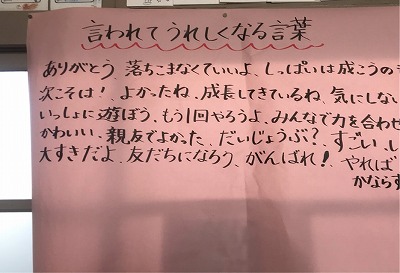 言われてうれしくなる言葉
ありがとう、落ちこまなくていいよ、しっぱいは成こうの
次こそは!、よかったね、成長してきているね、気にしない
いっしょに遊ぼう、もう1回やろうよ、みんなで力を合わせ
かわいい、親友でよかった、だいじょうぶ?、すごい、し
大すきだよ、友だちになろう、がんばれ!、やれば
かならず